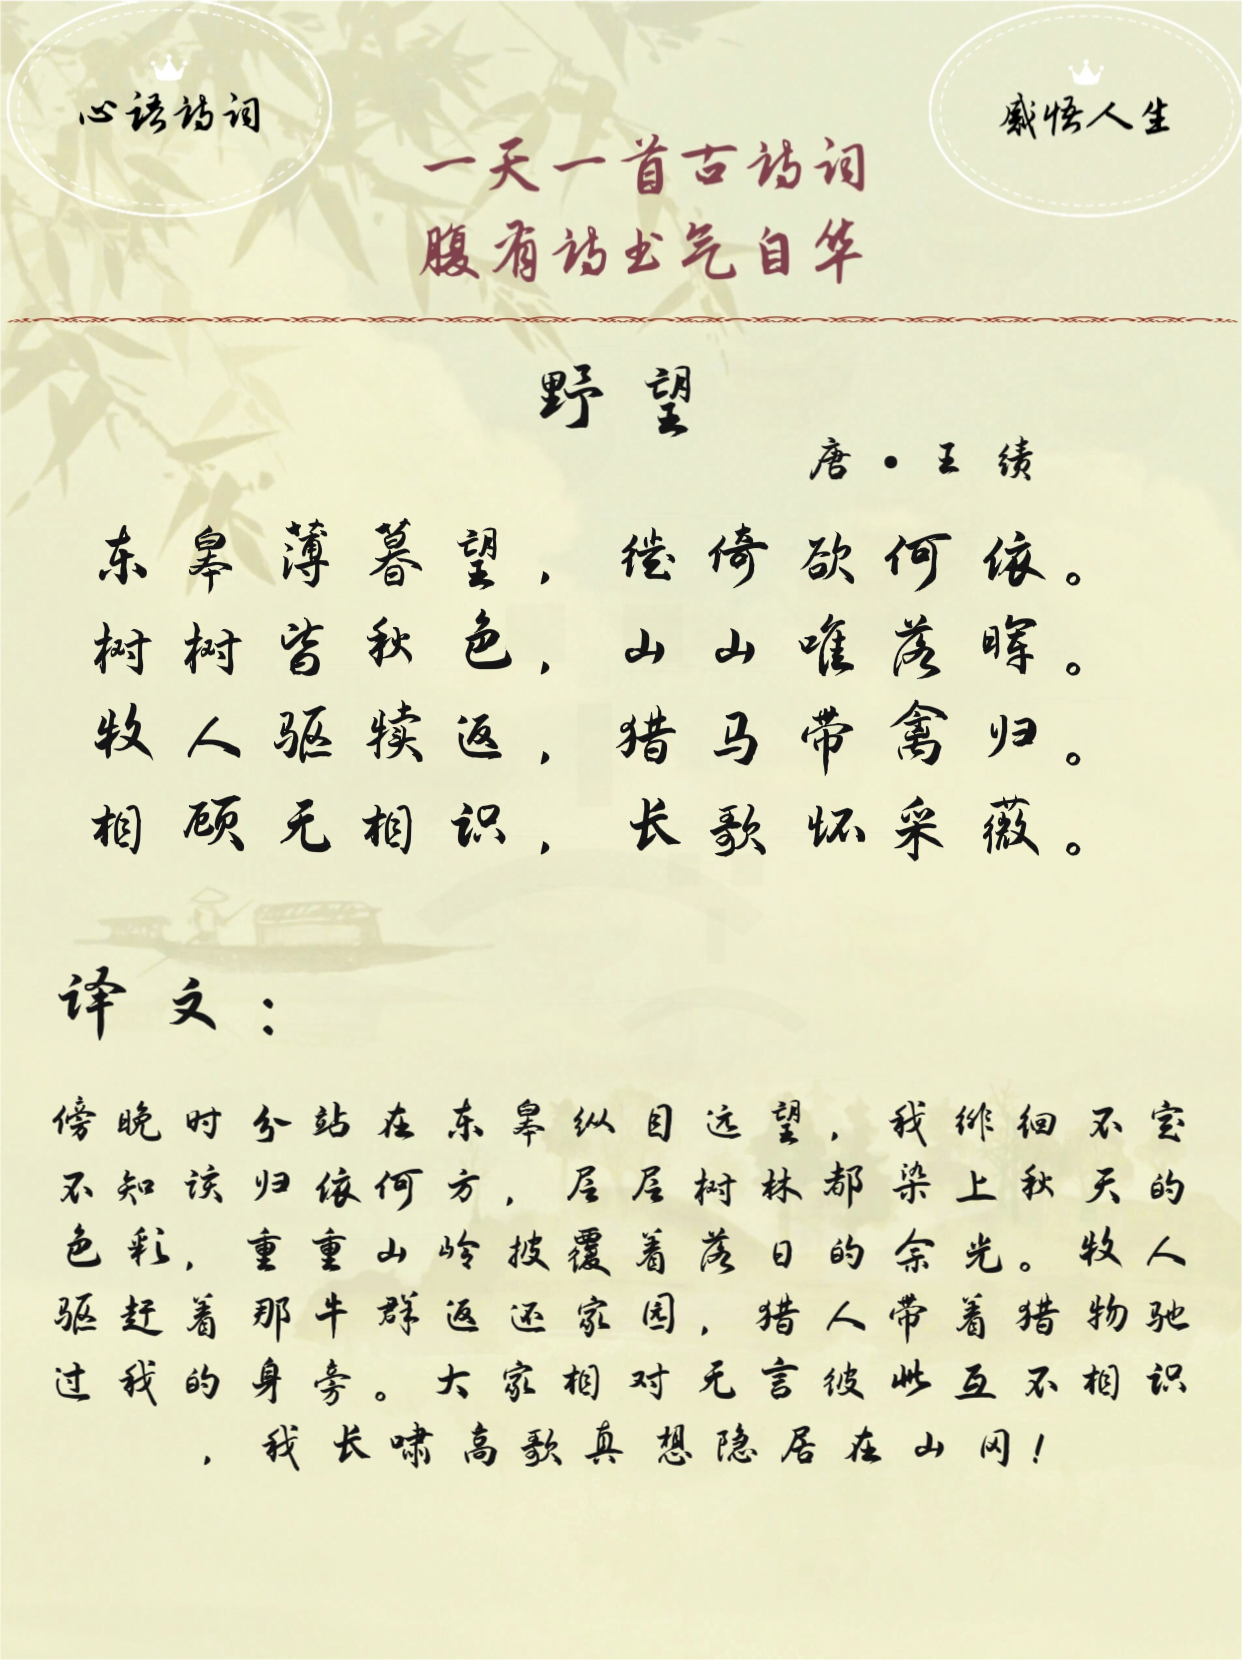 心语诗词
感悟人生
一天一首古诗词
腹有诗书气自华
野望
唐·王绩
东皋薄暮望，徙倚欲何依。
树树皆秋色，山山唯落晖。
牧人驱犊返，猎马带禽归。
相顾无相识，长歌怀采薇。
译文：
傍晚时分站在东皋纵目远望，我徘徊不定
不知该归依何方，层层树林都染上秋天的
色彩，重重山岭披覆着落日的余光。牧人
驱赶着那牛群返还家园，猎人带着猎物驰
过我的身旁。大家相对无言彼此互不相识
，我长啸高歌真想隐居在山冈！